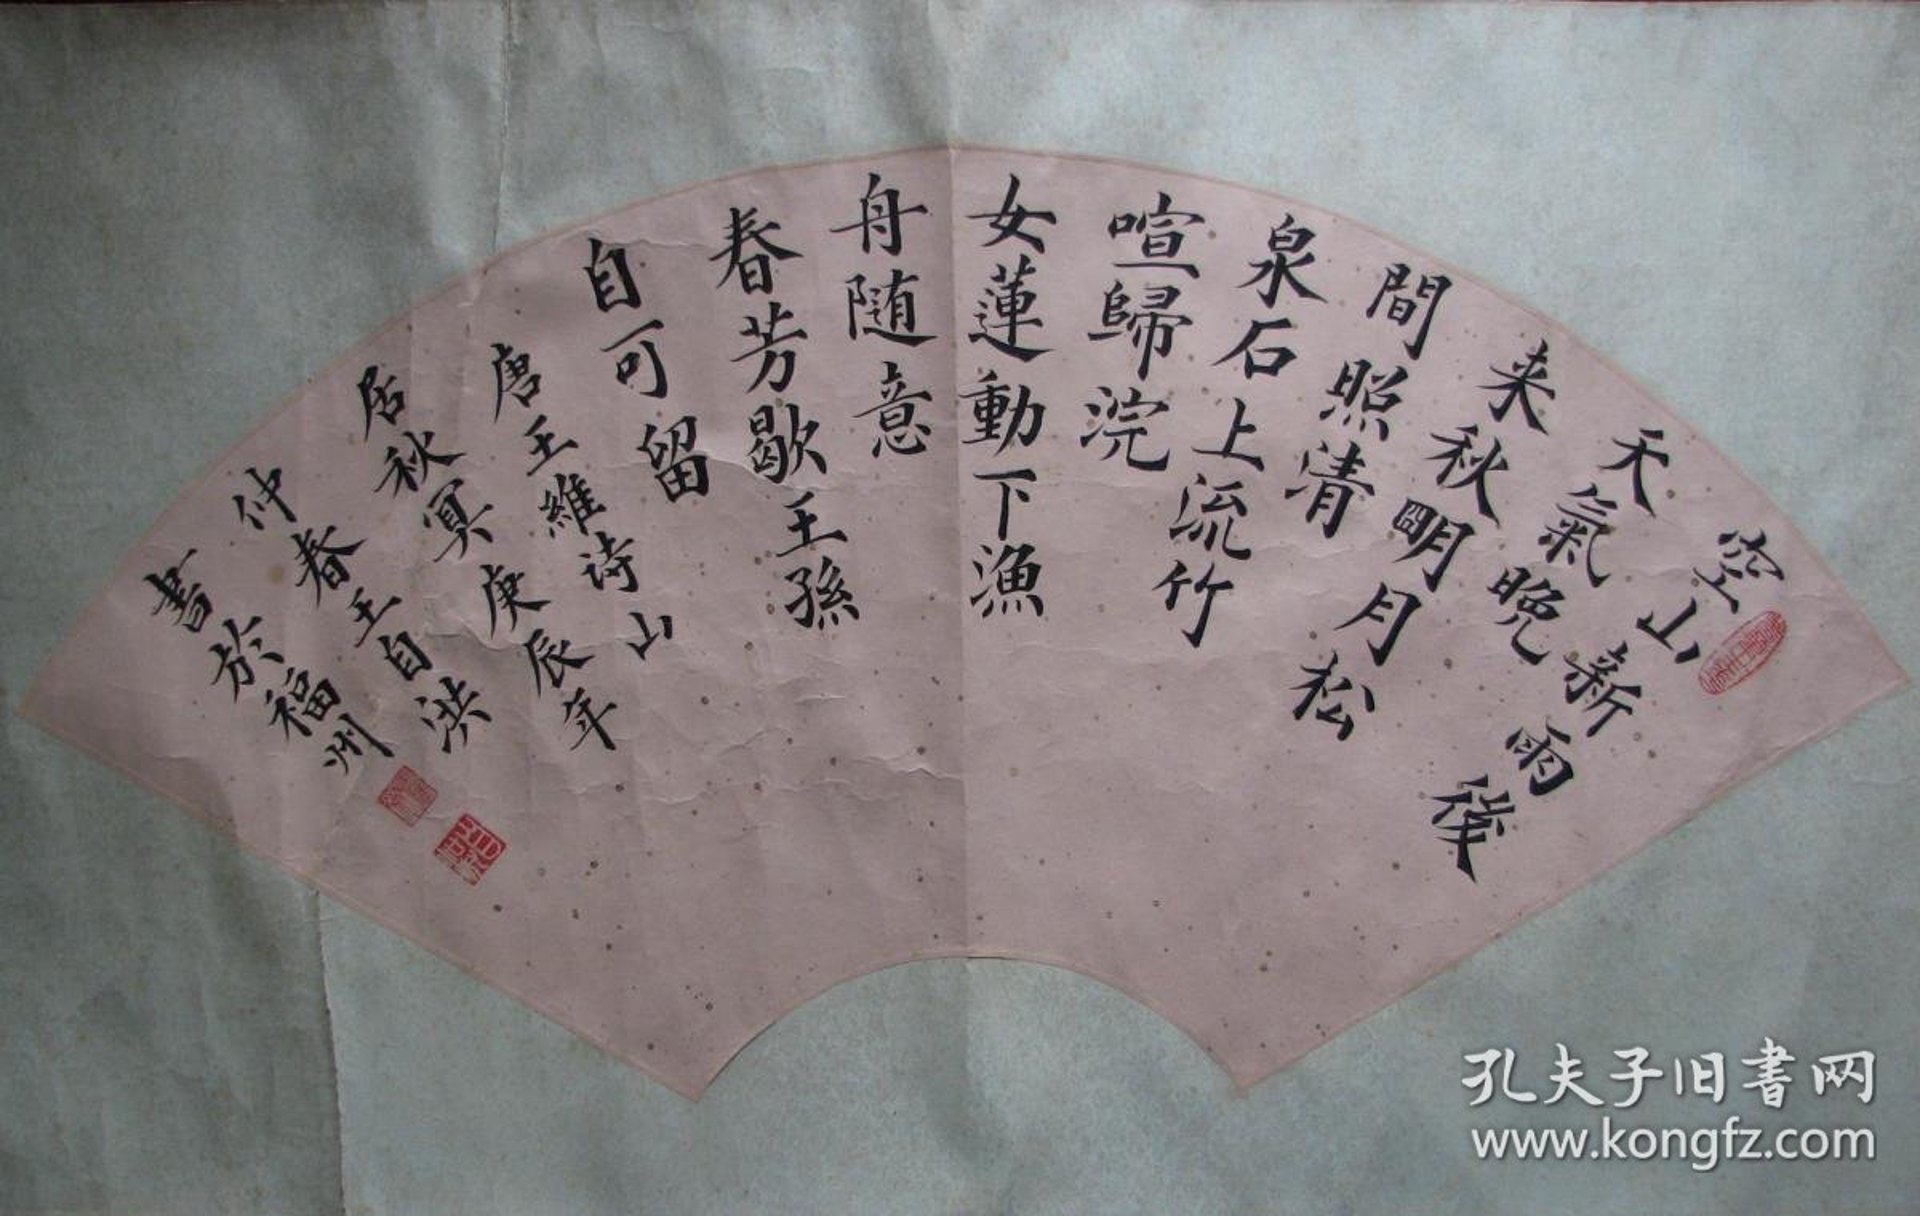 空山新雨後
天氣晚
来秋明月松
間照清
泉石上流竹
喧歸浣
女蓮動下漁
舟随意
春芳歇王孫
自可留
唐王維诗山
居秋冥庚辰年
仲春王自洪
書於福州
孔夫子旧書网
www.kongfz.com